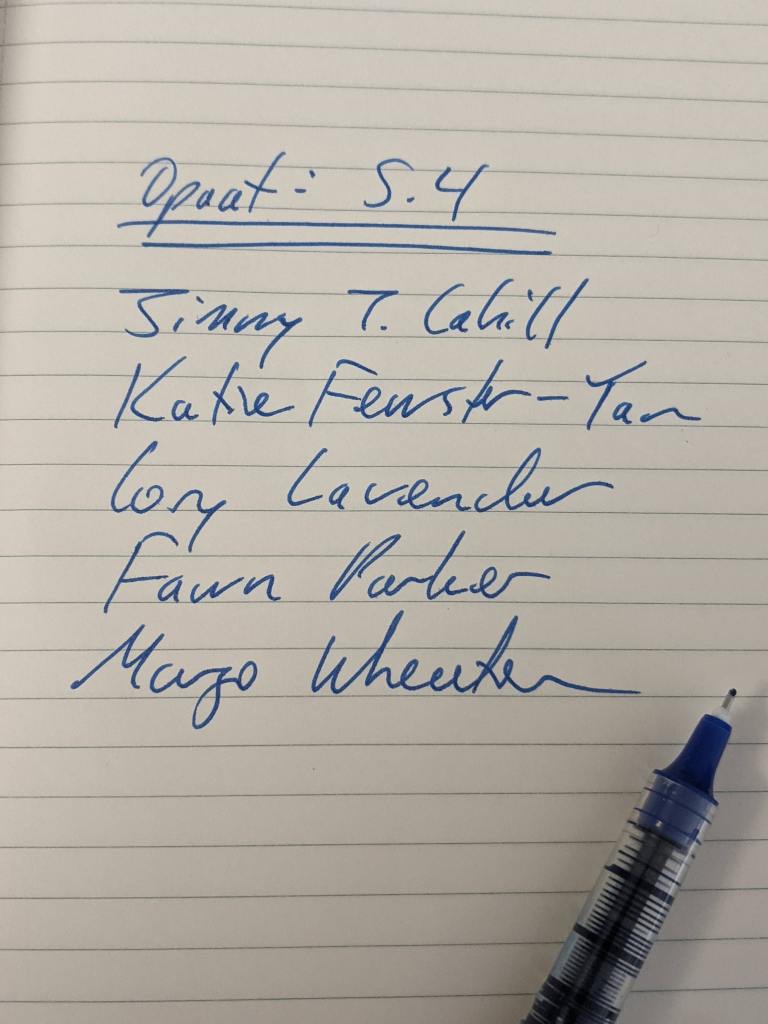 Opaat: S.4
Jimmy T. Cahill
Katie Fewster-Yan
Cory Lavender
Fawn Parker
Margo Wheaton